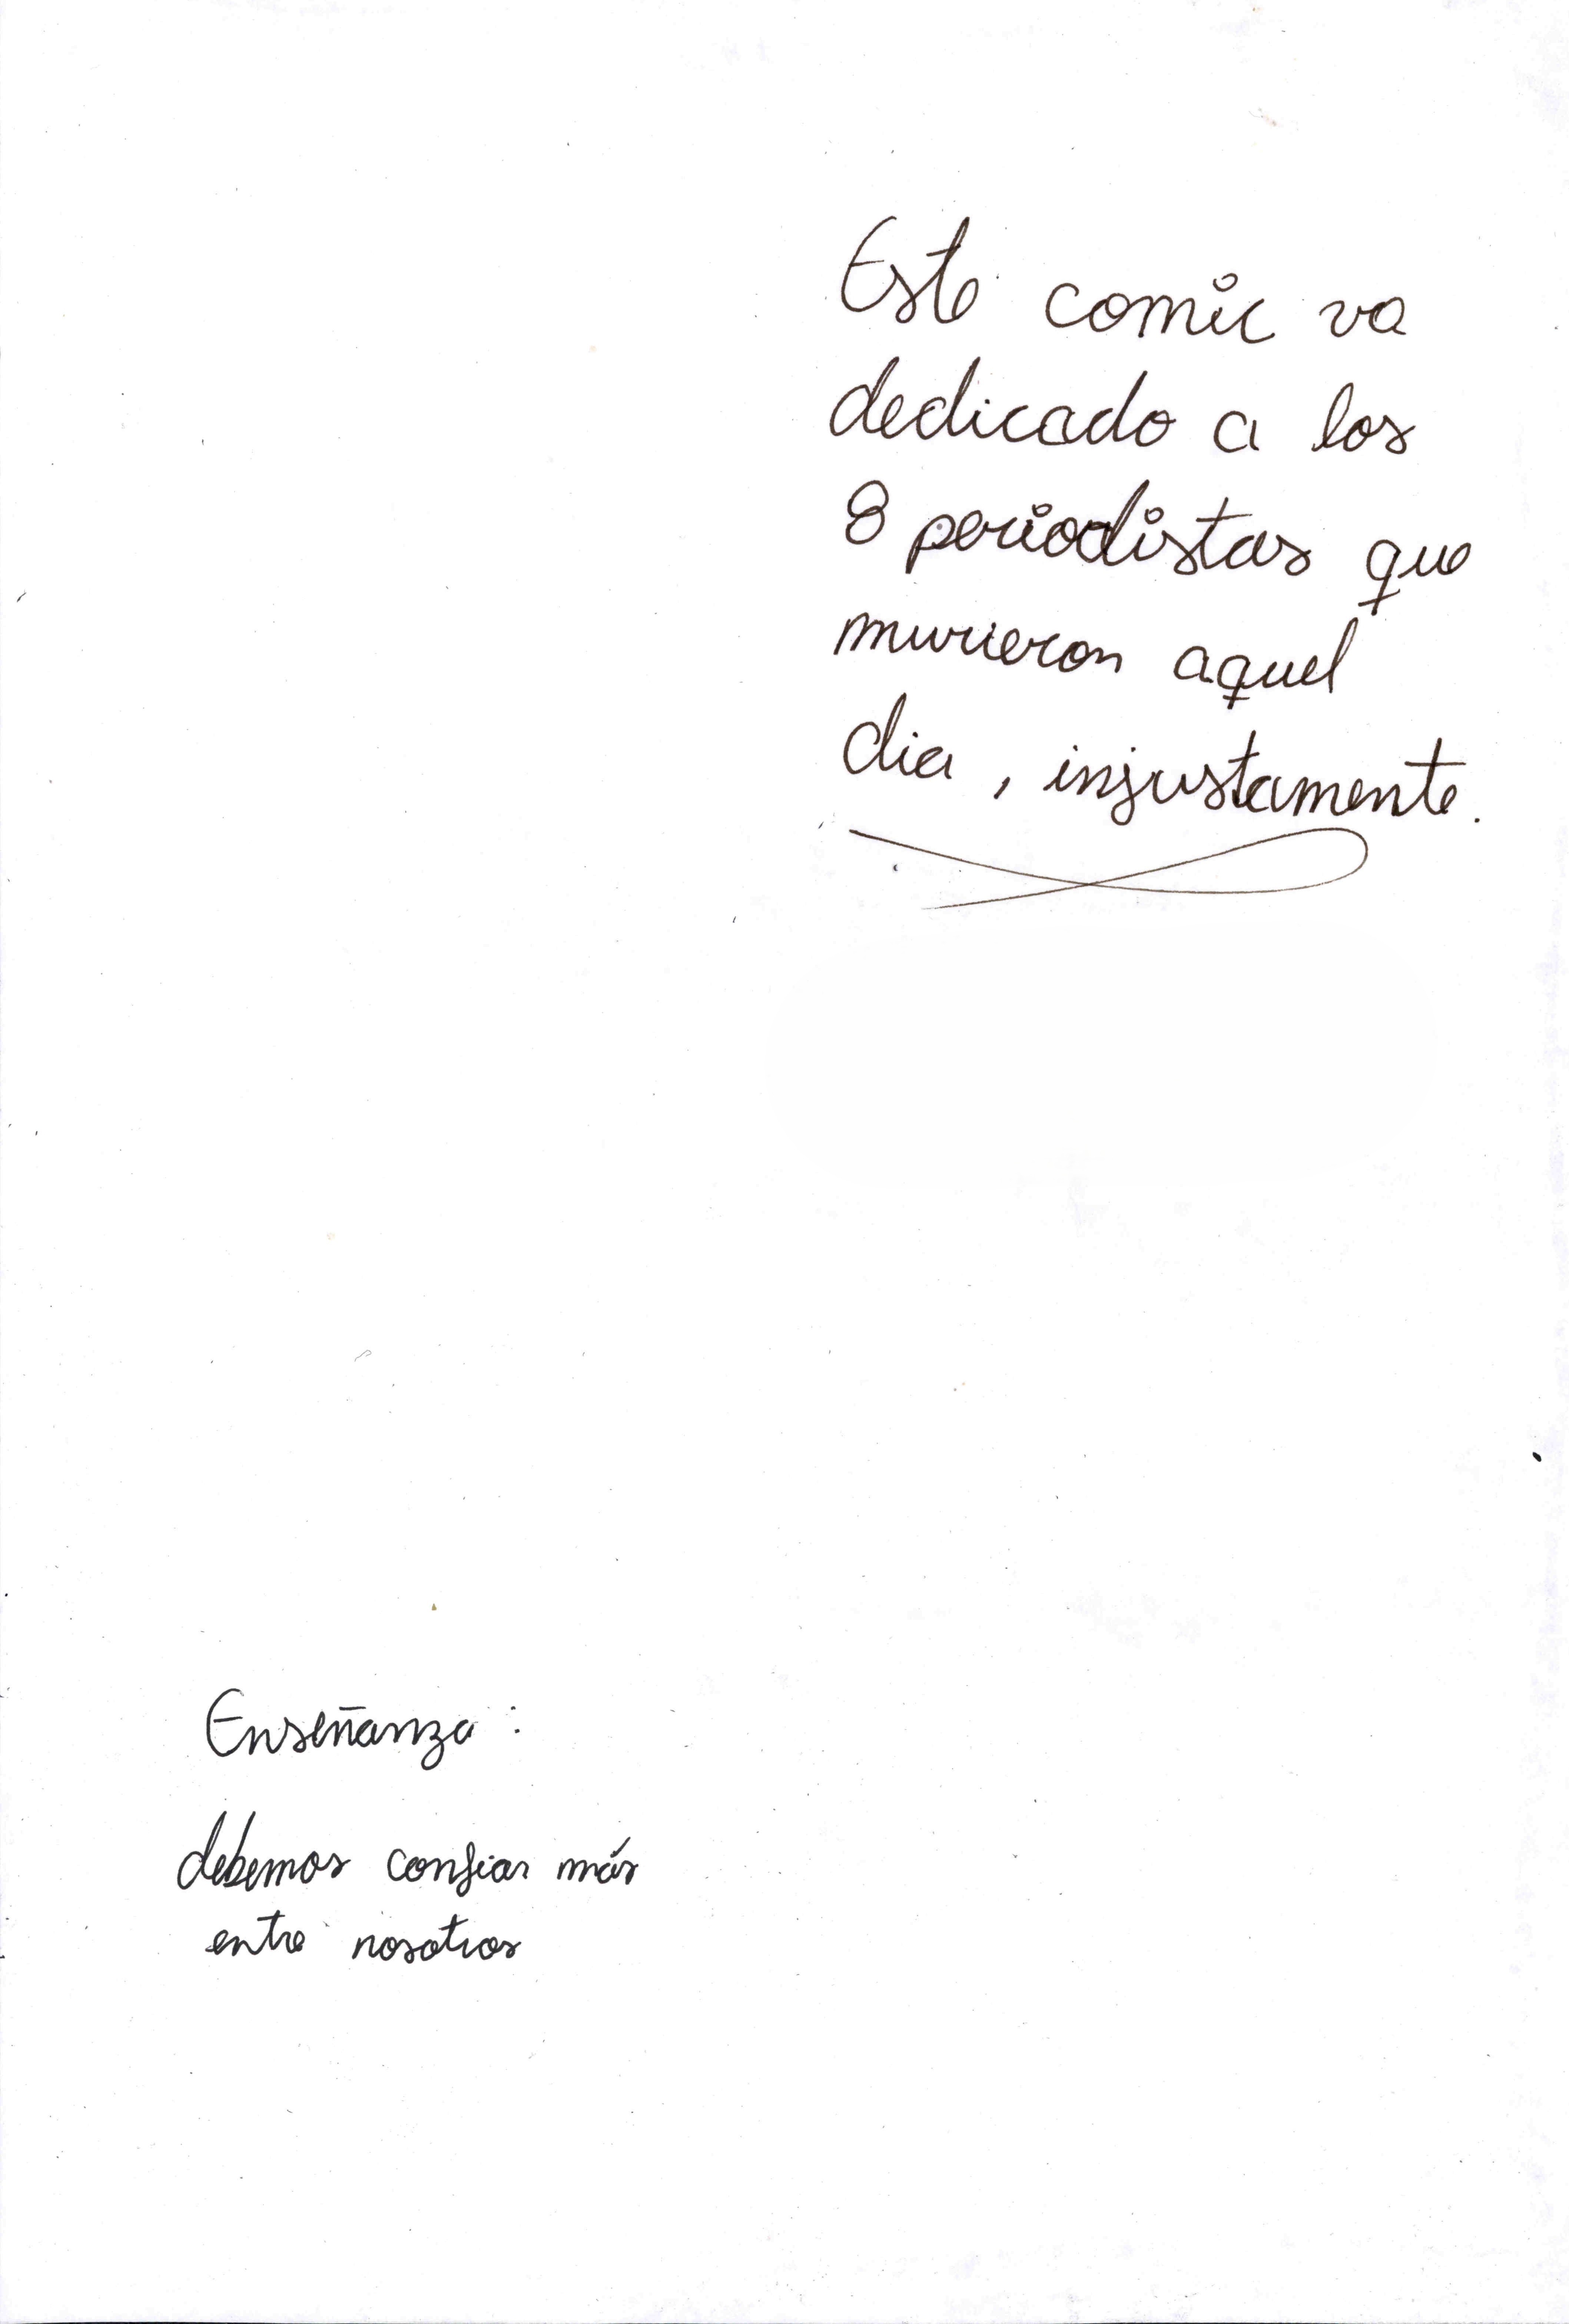 Este comic va
dedicado a los
8 periodistas que
murieron aquel
dia, injustamente.
Enseñanza:
debemos confiar más
entre nosotros